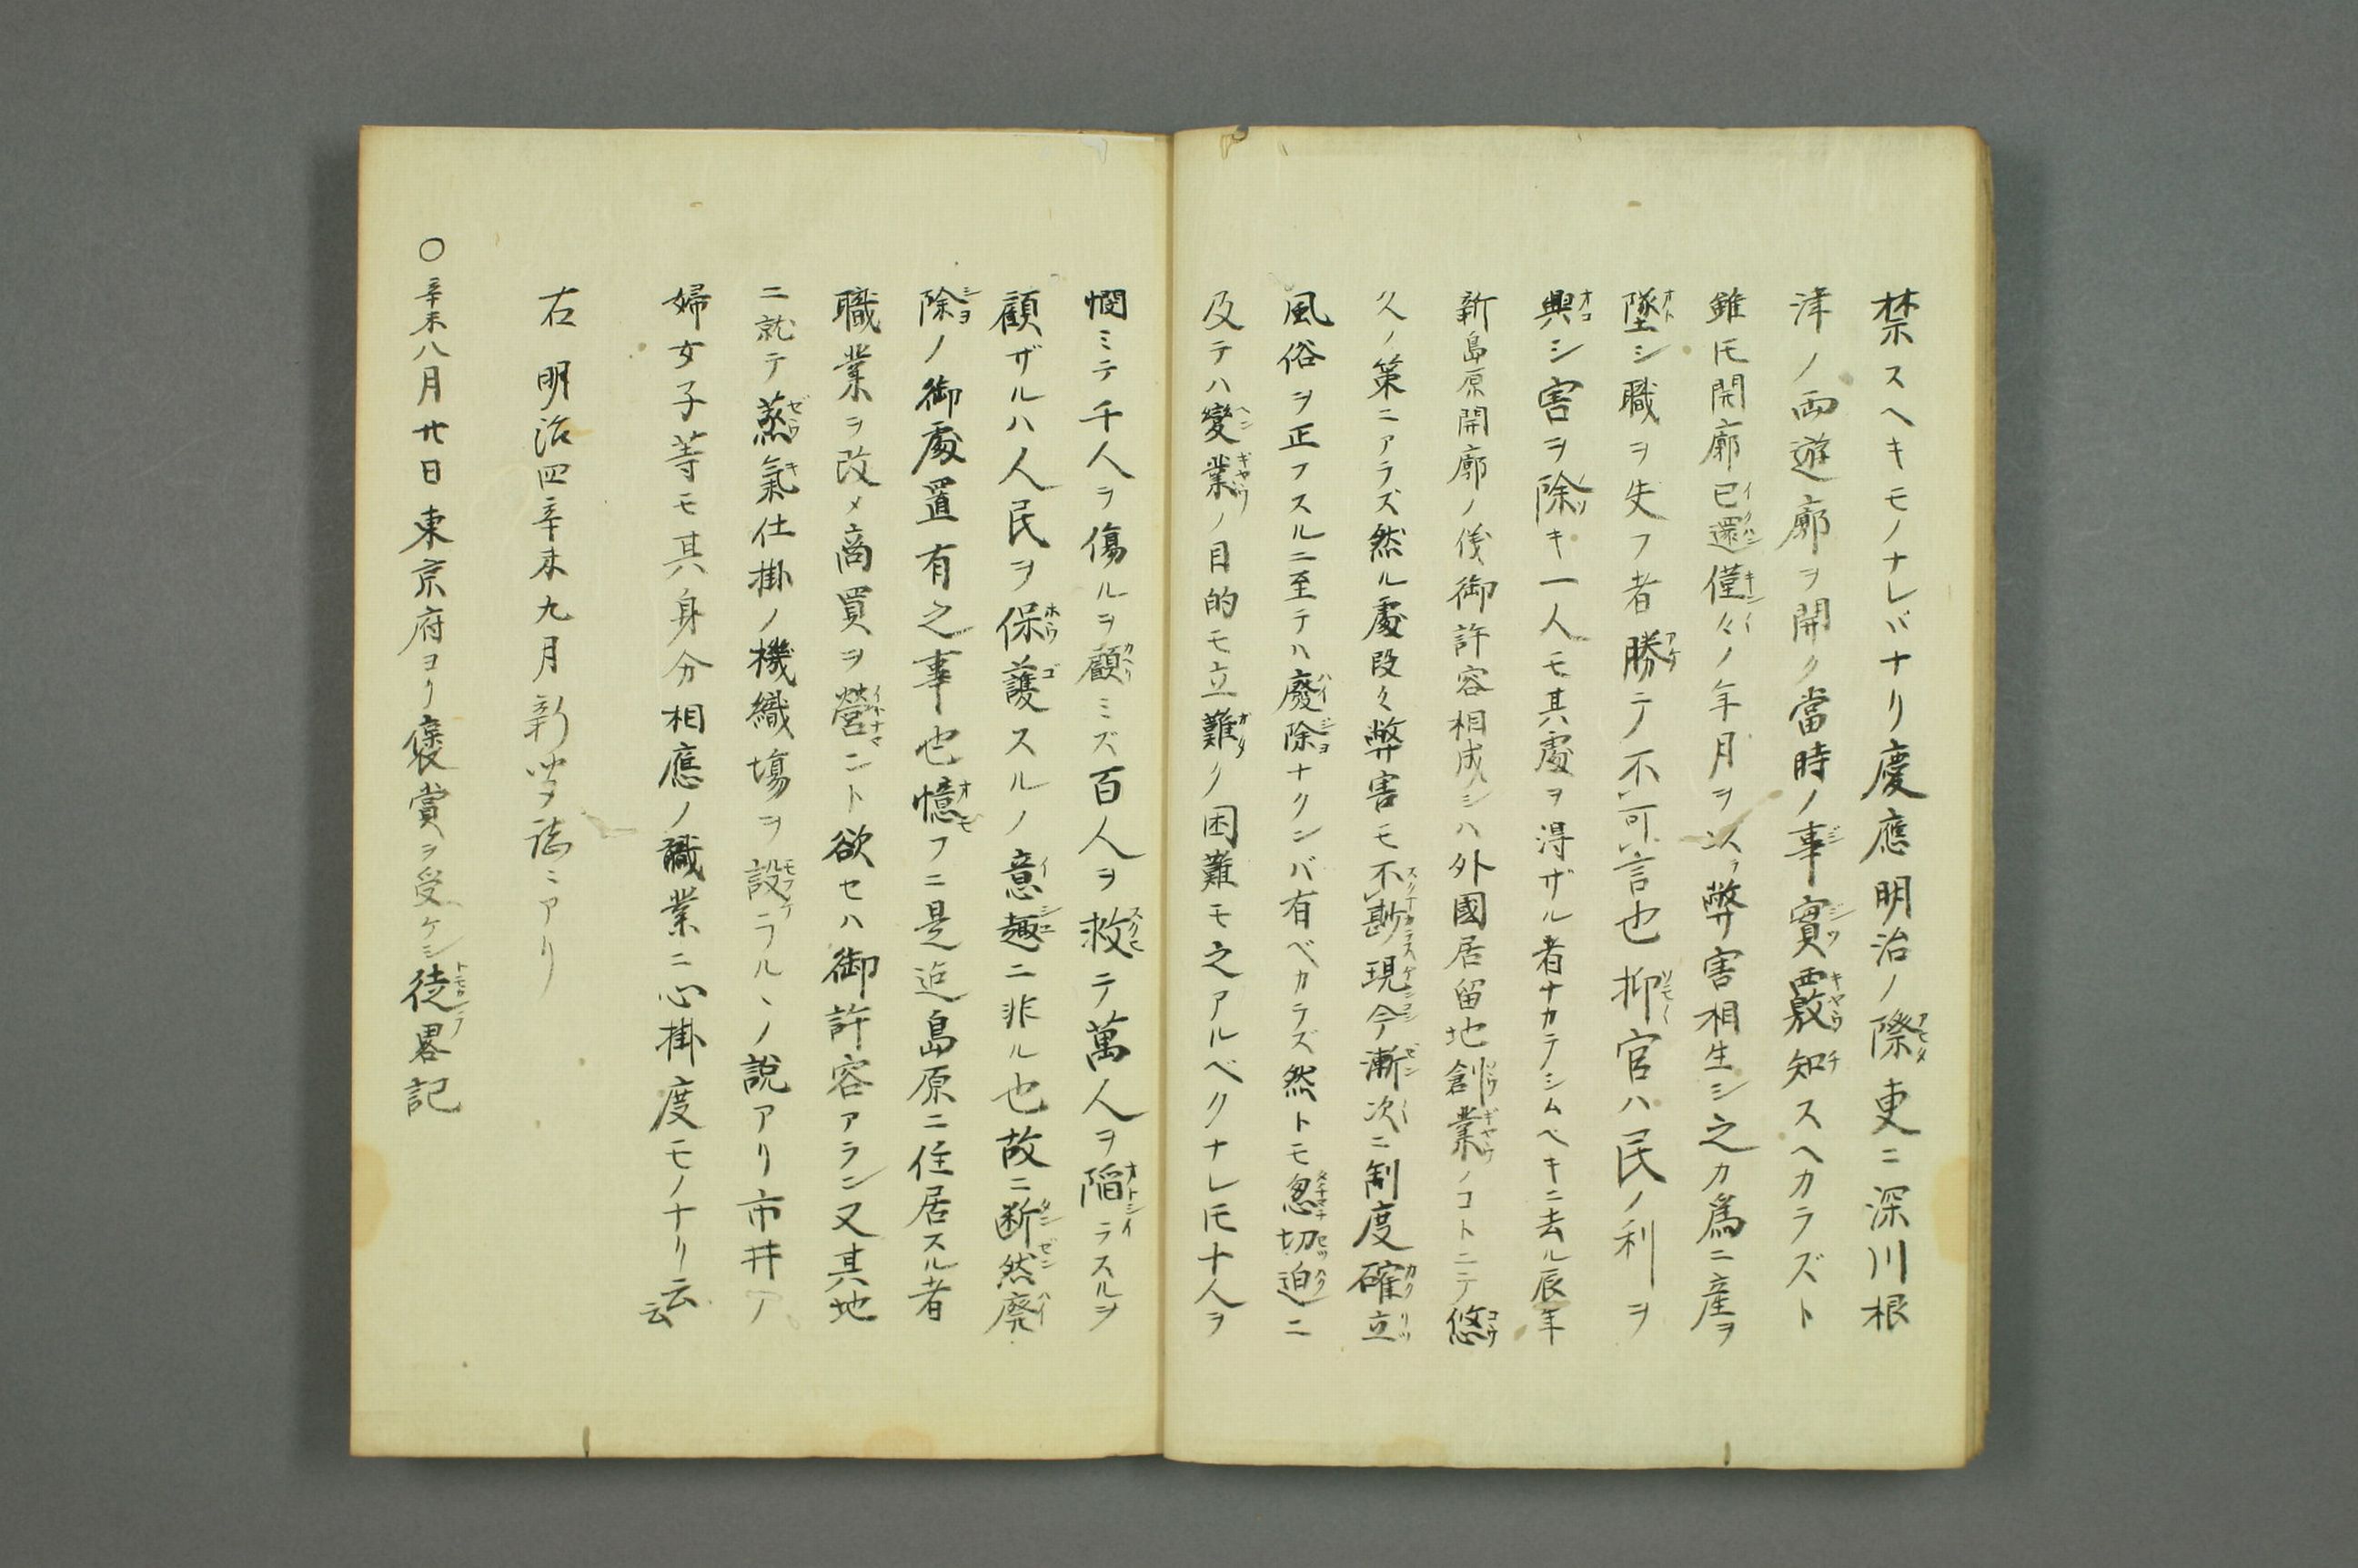 禁スヘキモノナレバナリ慶應明治ノ際更ニ深川根
津ノ両遊廓ヲ開ク當時ノ事實覈知スヘカラズト
雖ドモ開廓已還僅々ノ年月ヲ以テ弊害相生シ之カ為ニ産ヲ
墜シ職ヲ失フ者勝テ不可言也抑官ハ民ノ利ヲ
興シ害ヲ除キ一人モ其處ヲ得ザル者ナカラシムベキニ去ル辰年
新島原開廓ノ儀御許容相成シハ外國居留地創業ノコトニテ悠
久ノ策ニアラズ然ル處段々弊害モ不尠現今漸次ニ制度確立
風俗ヲ正フスルニ至テハ廢除ナクンバ有ベカラズ然トモ怱切迫ニ
及テハ變業ノ目的モ立難ク困難モ之アルベクナレ𪜈十人ヲ
憫ミテ千人ヲ傷ルヲ顧ミズ百人ヲ救テ萬人ヲ陷ラスルヲ
顧ザルハ人民ヲ保護スルノ意趣ニ非ル也故ニ断然廃
除ノ御處置有之事也憶フニ是迠島原ニ住居スル者
職業ヲ改メ商買ヲ營ント欲セハ御許容アラン又其地
ニ就テ蒸氣仕掛ノ機織場ヲ設ラルヽノ説アリ市井ノ
婦女子等モ其身分相應ノ職業ニ心掛度モノナリ云云
右明治四辛未九月新聞誌ニアリ
○辛未八月廿日東京府ヨリ褒賞ヲ受ケシ徒畧記